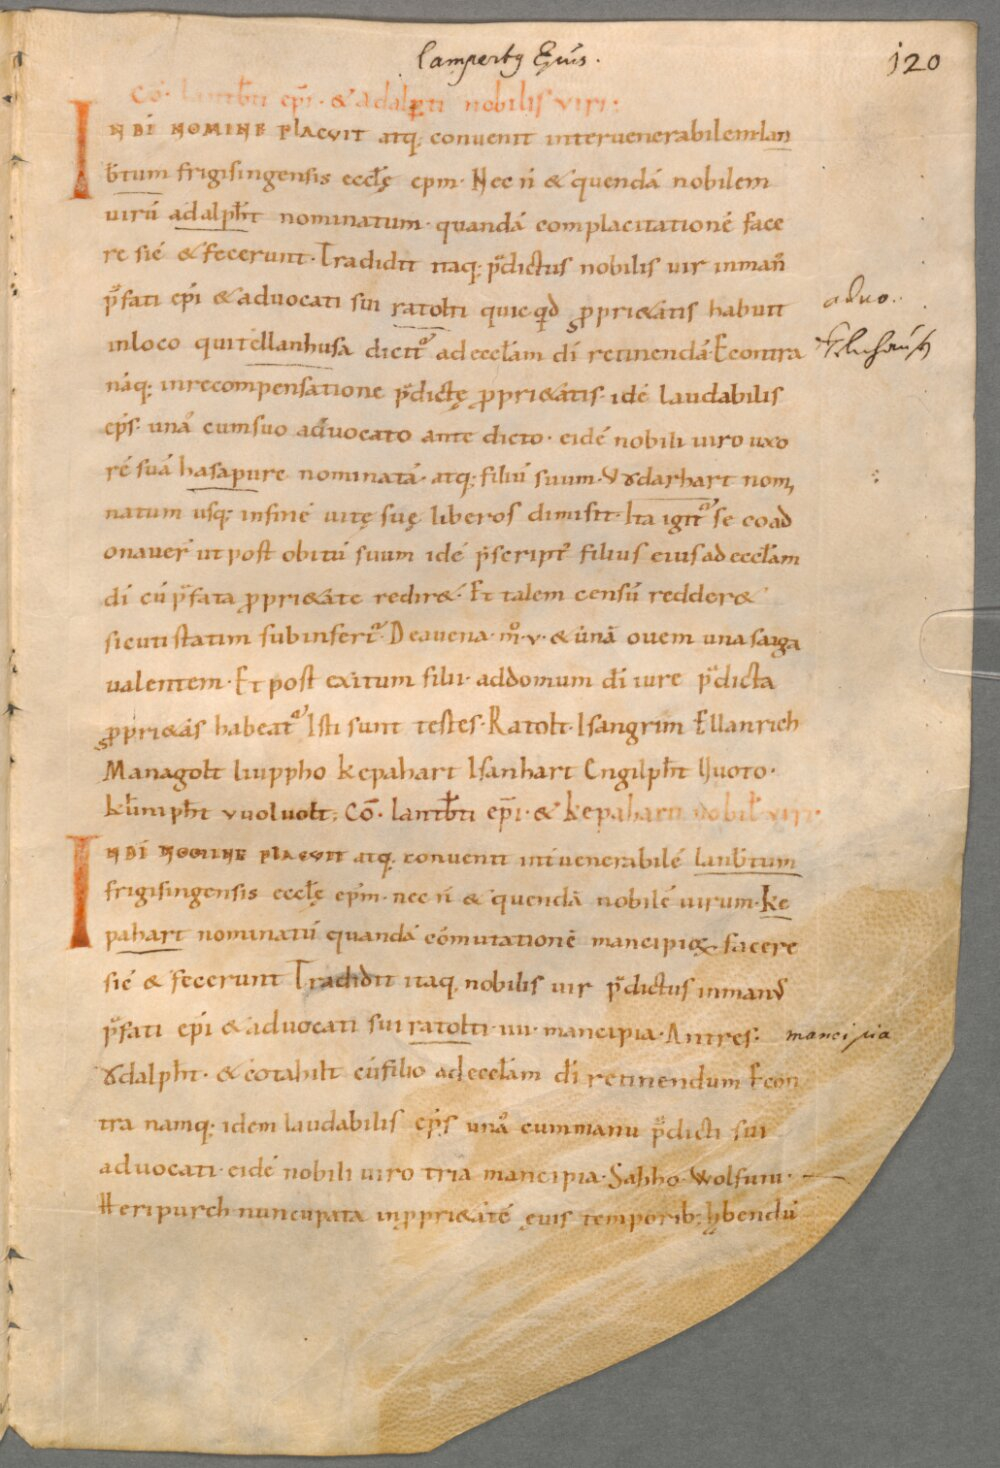 Lamperty Epũs.
120
Cō· lantb̄ti ep̄i· & adalp̄ti nobilis viri:
IN DĪ NOMINE PLACVIT atq; convenit intervenerabilem lan
b̄tum frigisingensis eccłę epm· Nec n̄ & quendā nobilem
virū adalph̄t nominatum· quandā complacitationē face
re sic̄ & fecerunt· Tradidit itaq; p̄dictus nobilis vir inman̄
p̄fati ep̄i & advocati sui ratolti quicq̄d ꝓpri&atis habuit
inloco qui tellanhusa dicit᷑ ad eccłam dī retinendā· Econtra
nāq; inrecompensatione p̄dictę ꝓpri&atis· idē laudabilis
ep̄s· una cumsuo advocato ante dicto· eidē nobili viro uxo
rē suā hasapure nominatā· atq; filiū suum· Vodarhart nom
natum usq; infinē vitę suę liberos dimisit· Ita igit᷑ se coad
onaver̄ ut post obitū suum idē p̄script᷑ filius eius ad eccłam
dī cū p̄fata ꝓpri&ate redir&· Et talem censū redder&
sicuti statim subinsert᷑· De avena· m̊· v· & unā ovem una saiga
valentem· Et post exitum filii· addomum dī iure p̄dicta
ꝓpri&as habeat᷑ Isti sunt testes· Ratolt· Isangrim Ellanrich
Managolt liuppho kepahart Isanhart Engilph̄t Huoto·
kunipħt vuoluolt; Cō· lantb̄ti ep̄i· & kepaharti nobił viri·
IN DĪ NOMINE PLACVIT atq; convenit int̄venerabilē lantb̄tum
frigisingensis eccłę ep̄m· nec n̄ & quendā nobilē virum· ke
pahart nominatū quandā cōmutationē mancipioꝝ facere
sic̄ & fecerunt Tradidit itaq; nobilis vir p̄dictus inmanꝰ
p̄fati ep̄i & advocati sui ratolti· iii· mancipia· Antres:
Odalph̄t· & cotahilt cūfilio ad eccłam dī retinendum Econ
tra namq; idem laudabilis ep̄s una cummanu p̄dicti sui
advocati· eidē nobili viro tria mancipia· Sahho· Wolfuni·
Heripurch nuncupata inꝓpri&atē evis temporib; habendū
advo..
mancipia